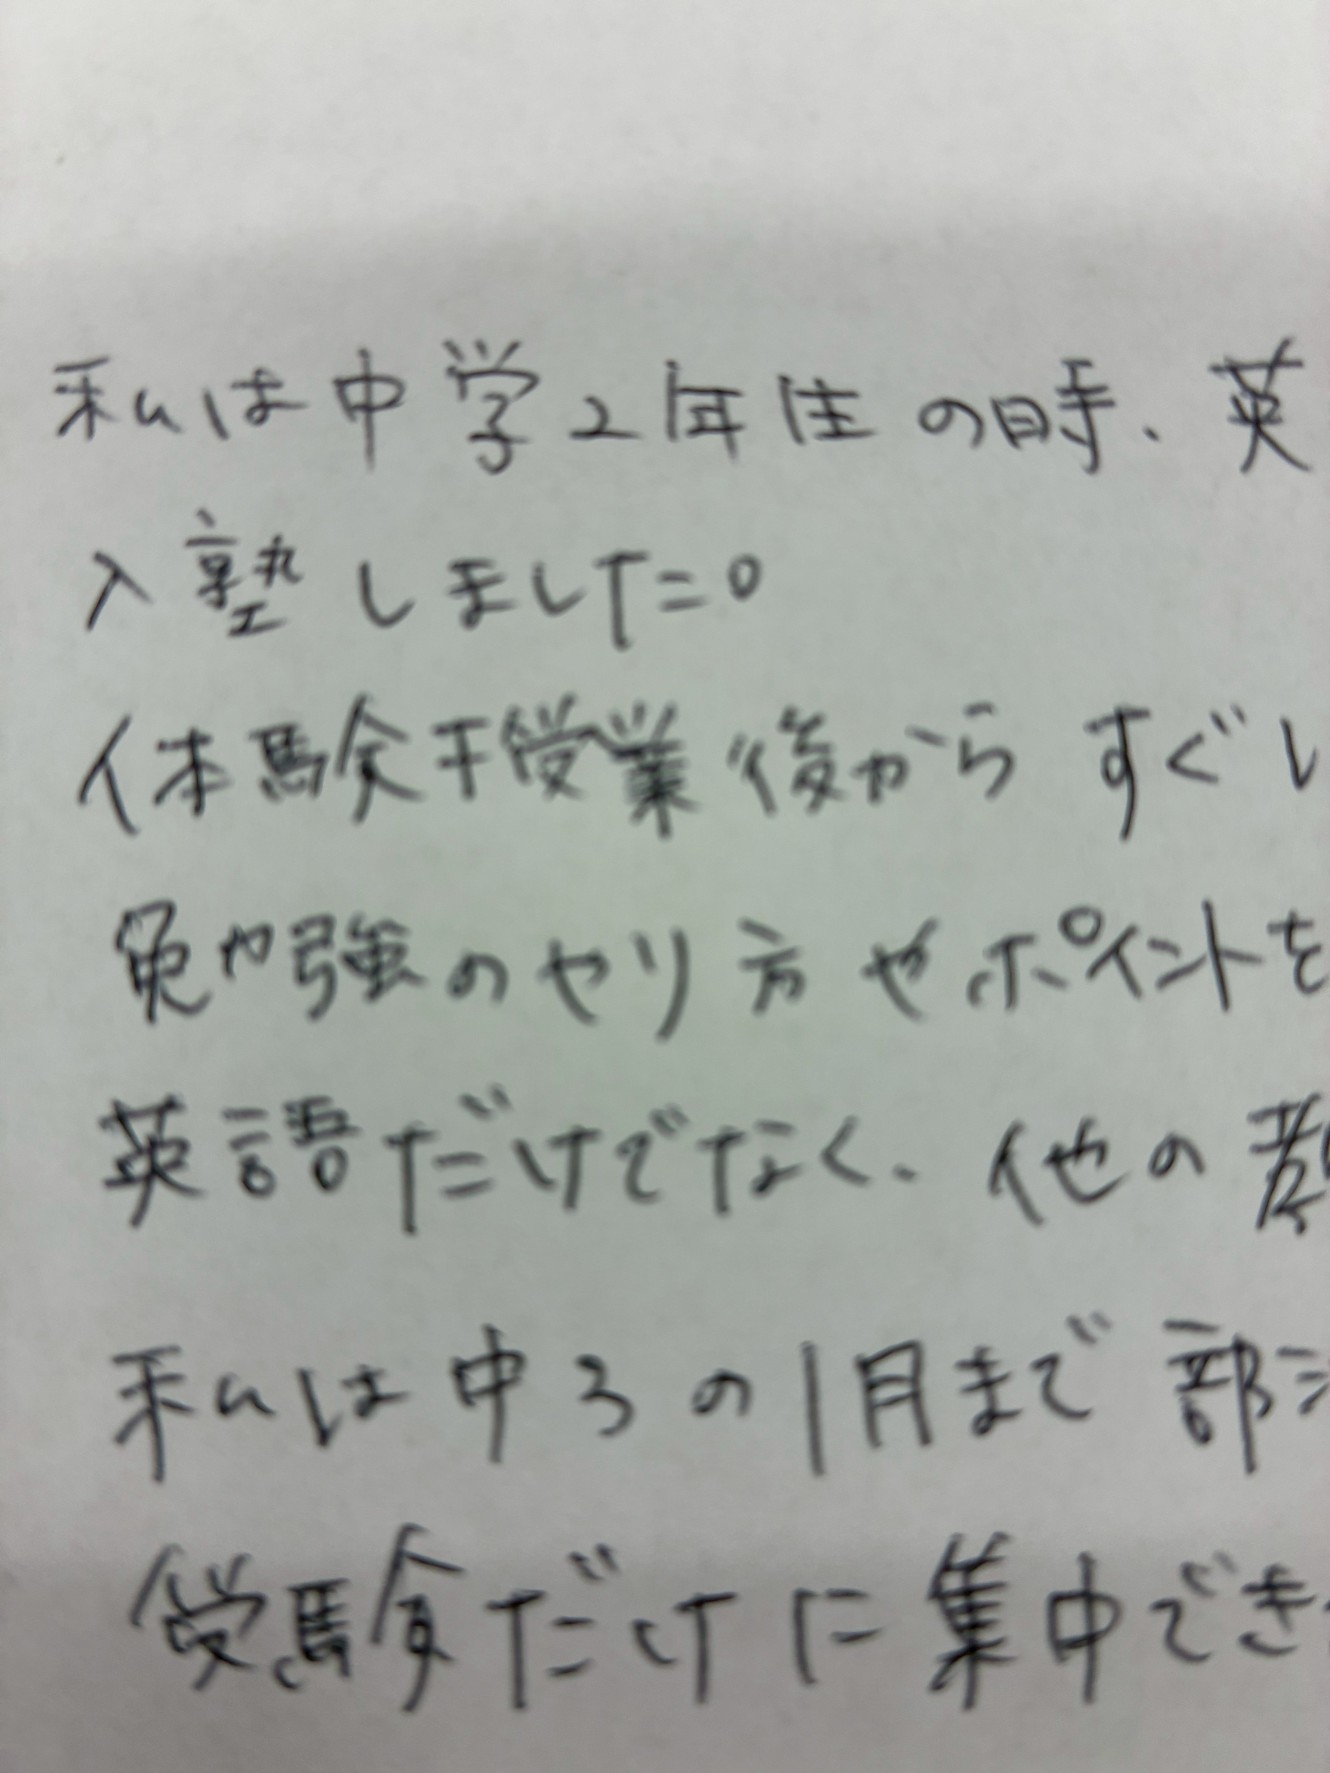 私は中学2年生の時、英
入塾しました。
体験授業後からすぐ
勉強のやり方やポイントを
英語だけでなく、他の
私は中3の1月まで部
受験だけに集中でき